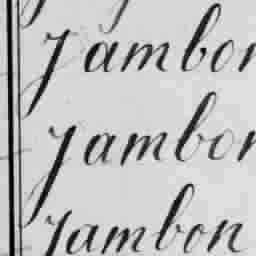 Jambon
Jambon
Jambon